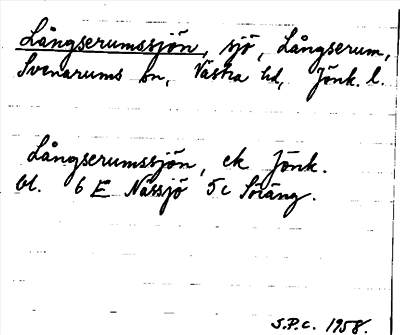 Långserumssjön, sjö, Långserum,
Svenarums sn, Västra hd, Jönk. l.
Långserumssjön, ek Jönk.
bl. 6 E Nässjö 5c Söräng.
S.P.C. 1958.